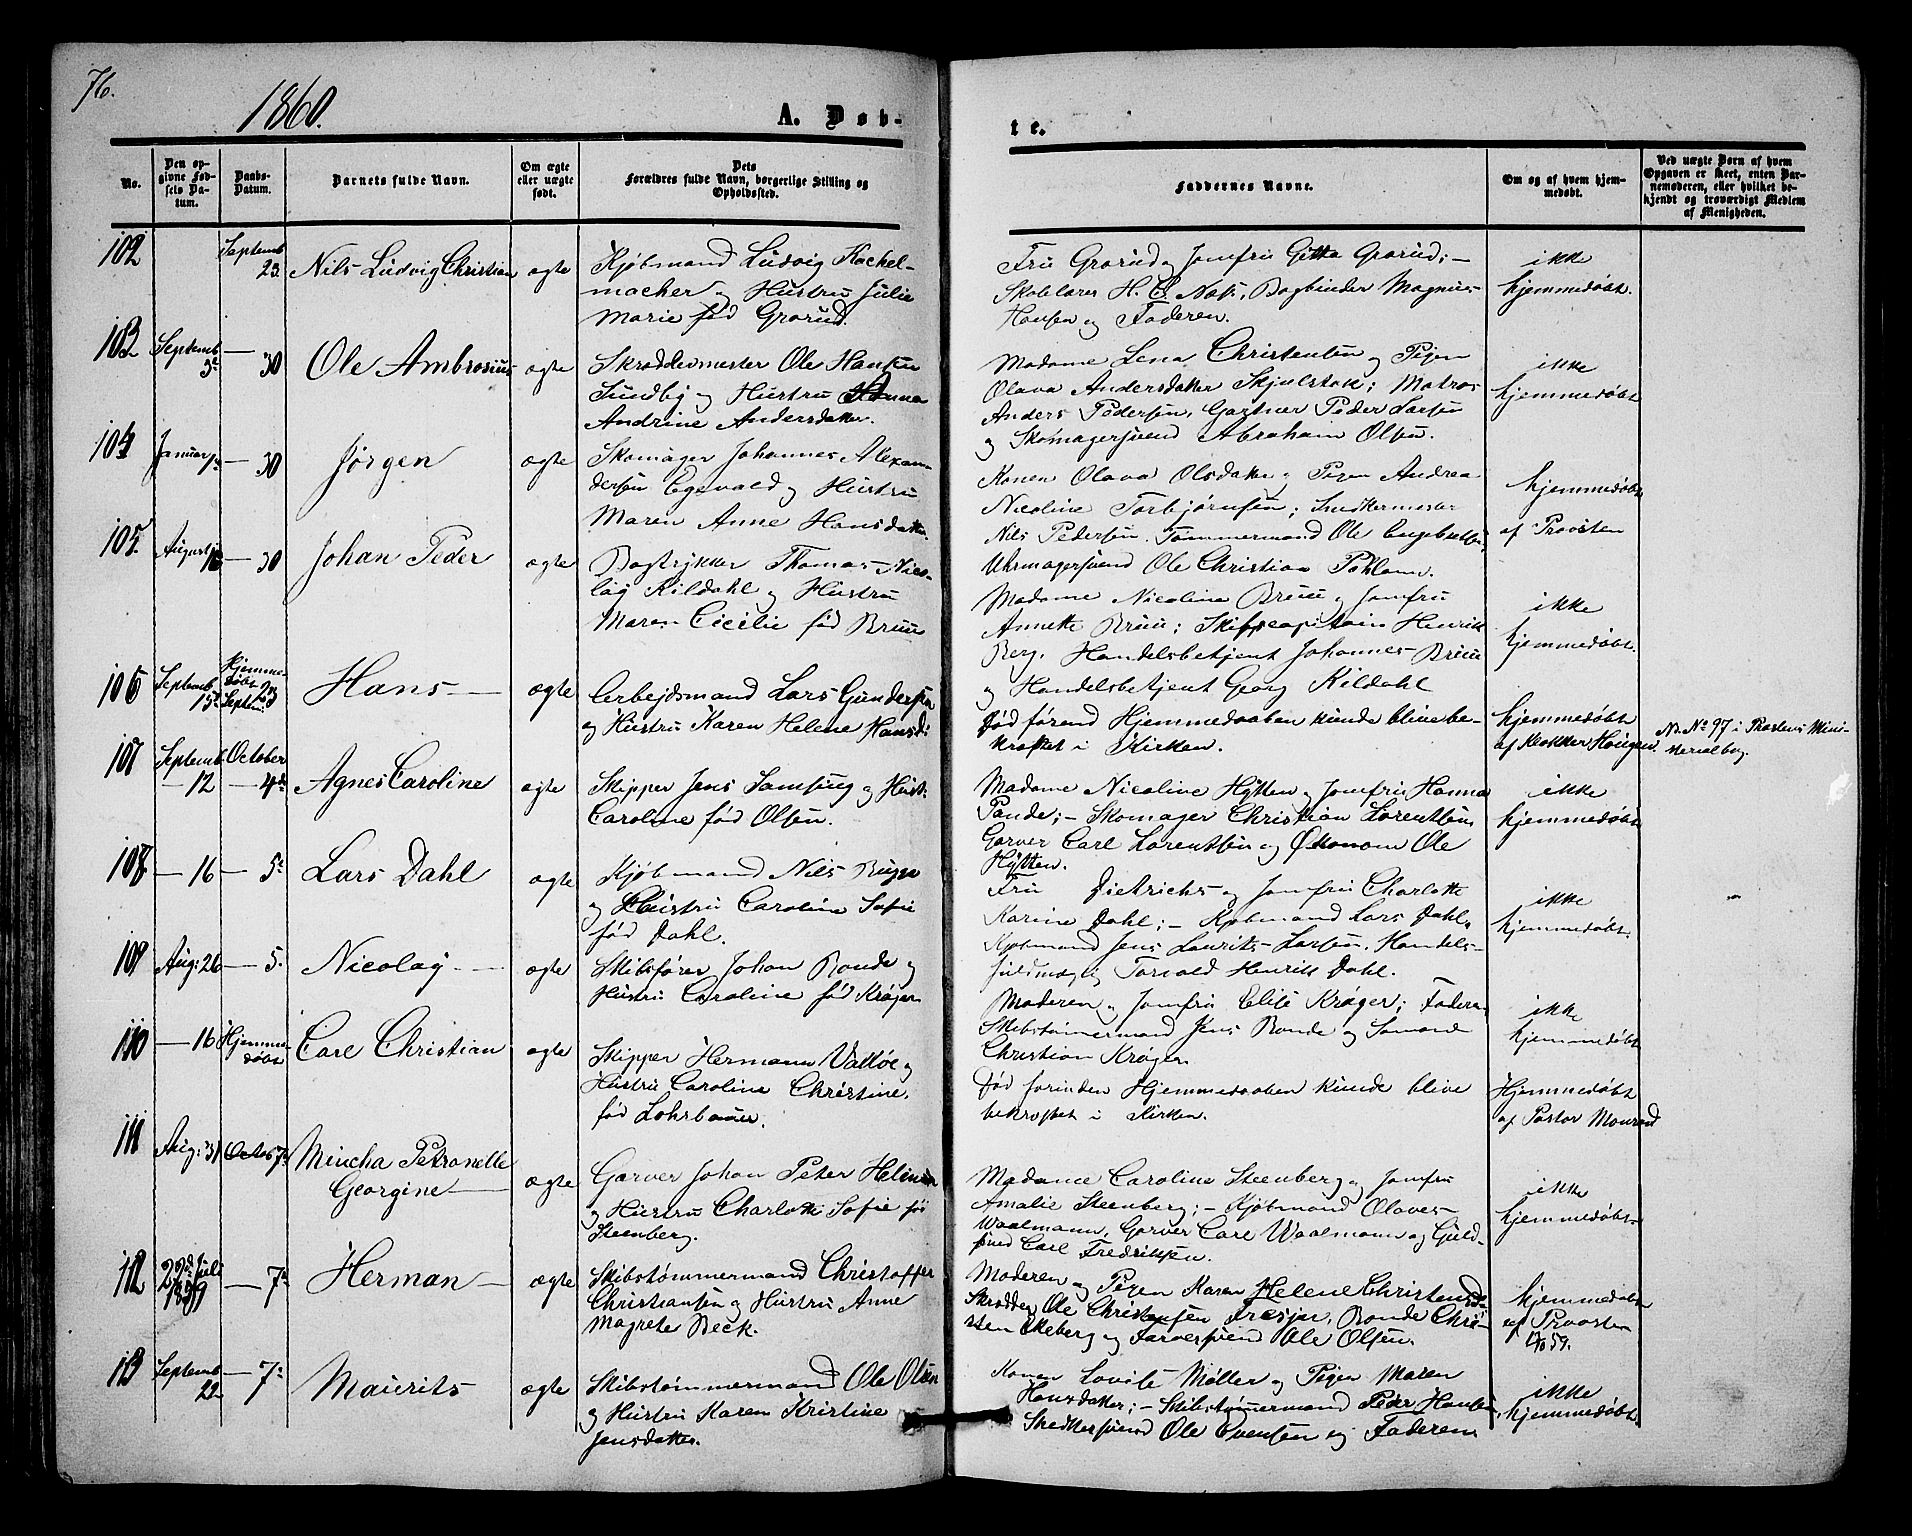 76.
1860.
A. Døb-
te.
No.
Den op-
givne Fød-
sels Da-
tum.
Daabs-
Datum.
Barnets fulde Navn.
Om ægte
eller uægte
født.
Dets
Forældres fulde Navn, borgerlige Stilling og
Opholdssted.
Faddernes Navne.
Om og af hvem hjem-
medøbt.
Ved uægte Børn af hvem
Opgaven er skeet, enten Bar-
nemoderen, eller hvilket be-
kjendt og troværdigt Medlem
af Menigheden.
102
Septemb
23.
Nils Ludvig Christian
ægte
Kjøbmand Ludvig Kachel-
macher og Hustru Julie
Marie fød Grorud.
Fru Grorud og Jomfru Gitta Grorud; —
Skolelærer H. E. Næs, Bogbinder Magnus
Hansen og Faderen.
ikke
hjemmedøbt.
103
Septemb
3d
— 30
Ole Ambrosius
ægte
Skræddermester Ole Hansen
Sundby og Hustru Anna
Andrine Andersdatter.
Madame Lena Christensen og Pigen
Olava Andersdatter Skjulstok; Matros
Anders Pedersen, Gartner Peder Larsen
og Skomagersvend Abraham Olsen.
ikke
hjemmedøbt
104
Januar
— 30
Jørgen
ægte
Skomager Johannes Alexan-
dersen Egevald og Hustru
Maren Anne Hansdatter.
Konen Olava Olsdatter og Pigen Andrea
Nicoline Torbjørnsen; Snedkermester
Nils Pedersen, Tømmermand Ole Engebretsen,
Uhrmagersvend Ole Christian Pohlman.
hjemmedøbt
af Provsten
105.
August 16
— 30
Johan Peder
ægte
Bogtrykker Thomas Nico-
lay Kildahl og Hustru
Maren Cicilie fød Bruu
Madame Nicoline Bruu og Jomfru
Annette Bruu; Skibscapitain Henrik
Berg, Handelsbetjent Johannes Bruu
og Handelsbetjent Georg Kildahl
ikke
hjemmedøbt.
106
Septemb
15d
Hjemme-
døbt 23
Septem:
Hans —
ægte
Arbejdsmand Lars Gundersen
og Hustru Karen Helene Hansd:
Død førend Hjemmedaaben kunde blive be-
kræftet i Kirken.
hjemmedøbt
af Klokker Haugen.
No 97 i Provstens Mini-
sterialbog.
107
Septemb
— 12
October
— 4de
Agnes Caroline
ægte
Skipper Jens Samsing og Hust.
Caroline fød Olsen.
Madame Nicoline Hytten og Jomfru Hanna
Pande; — Skomager Christian Lorentsen,
Garver Carl Lorentsen og Økonom Ole
Hytten.
ikke
hjemmedøbt
108
— 16
— 5te
Lars Dahl
ægte
Kjøbmand Nils Bugge
og Hustru Caroline Sofie
fød Dahl.
Fru Dietrichs og Jomfru Charlotte
Karine Dahl; — Kjøbmand Lars Dahl,
Kjøbmand Jens Laurits Larsen, Handels-
fuldmægtig Torvald Henrik Dahl.
ikke
hjemmedøbt.
109
Aug: 26
— 5.
Nicolay —
ægte
Skibsfører Johan Bonde og
Hustru Caroline fød Krøger
Moderen og Jomfru Elise Krøger; Faderen
Skibstømmermand Jens Bonde og Sømand
Christian Krøger.
ikke
hjemmedøbt
110
— 16
Hjemme-
døbt
Carl Christian
ægte
Skipper Hermann Valløe og
Hustru Caroline Christine
fød Lohrbauer.
Død forinden Hjemmedaaben kunde blive
bekræftet i Kirken.
Hjemmedøbt
af Pastor Monrad
111
Aug: 31
Octob 7de
Mincha Petronelle
Georgine —
ægte
Garver Johan Peter Helmer
og Hustru Charlotte Sofie fød
Steenberg.
Madame Caroline Steenberg og Jomfru
Amalie Steenberg; — Kjøbmand Olaves
Waalmann, Garver Carl Waalmann og Guld-
svend Carl Fredriksen.
ikke
hjemmedøbt
112
22d Juli
1859
— 7de
Herman —
ægte
Skibstømmermand Christoffer
Christiansen og Hustru Anne
Magrete Beck.
Moderen og Pigen Karen Helene Christensd.
Skrædder Ole Christensen Fresjer, Bonde Chri-
sten Ekeberg og Farversvend Ole Olsen.
hjemmedøbt
af Provsten
59.
113
Septemb
22
— 7de
Maurits
ægte
Skibstømmermand Ole Olsen
og Hustru Karen Kristine
Jensdatter.
Konen Lovise Møller og Pigen Maren
Hansdatter; — Skibstømmermand Peder Hansen,
Snedkersvend Ole Evensen og Faderen.
ikke
hjemmedøbt.